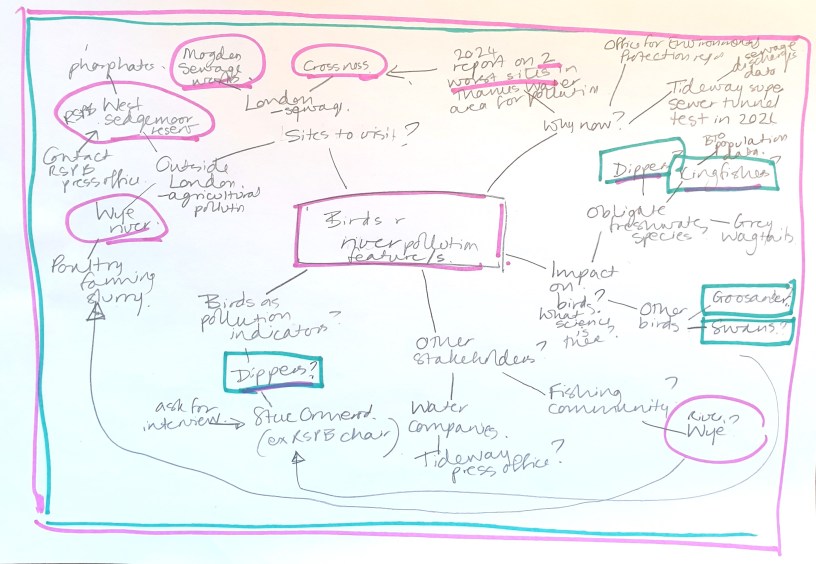 phosphates.
Mogden
Sewage
works
Crossness
2024
report on 2
worst sites in
Thames Water
area for pollution
Office for Environmental
Protection repo
sewage
discharges
data
Tideway supe
sewer tunnel
test in 202
Why now?
London
- sewage.
Sites to visit?
RSPB West
Sedgemoor
reserv
Contact
RSPB
press office.
Outside
London.
- agricultural
pollutn
Wye
river.
Poultry
farming
slurry.
Birds &
river pollution
feature/s.
Bio
population
data.
Dipper?
Kingfisher?
Obligate
freshwater
species
Grey
wagtails
Impact
on
birds?
What
science
is
there?
Other
birds
Goosander?
Swans?
Birds as
pollution
indicators?
Dippers?
ask for
interview
Steve Ormerod.
(ex RSPB chair)
Other
stakeholders?
Water
companies.
Tideway
press office?
Fishing
community?
River?
Wye